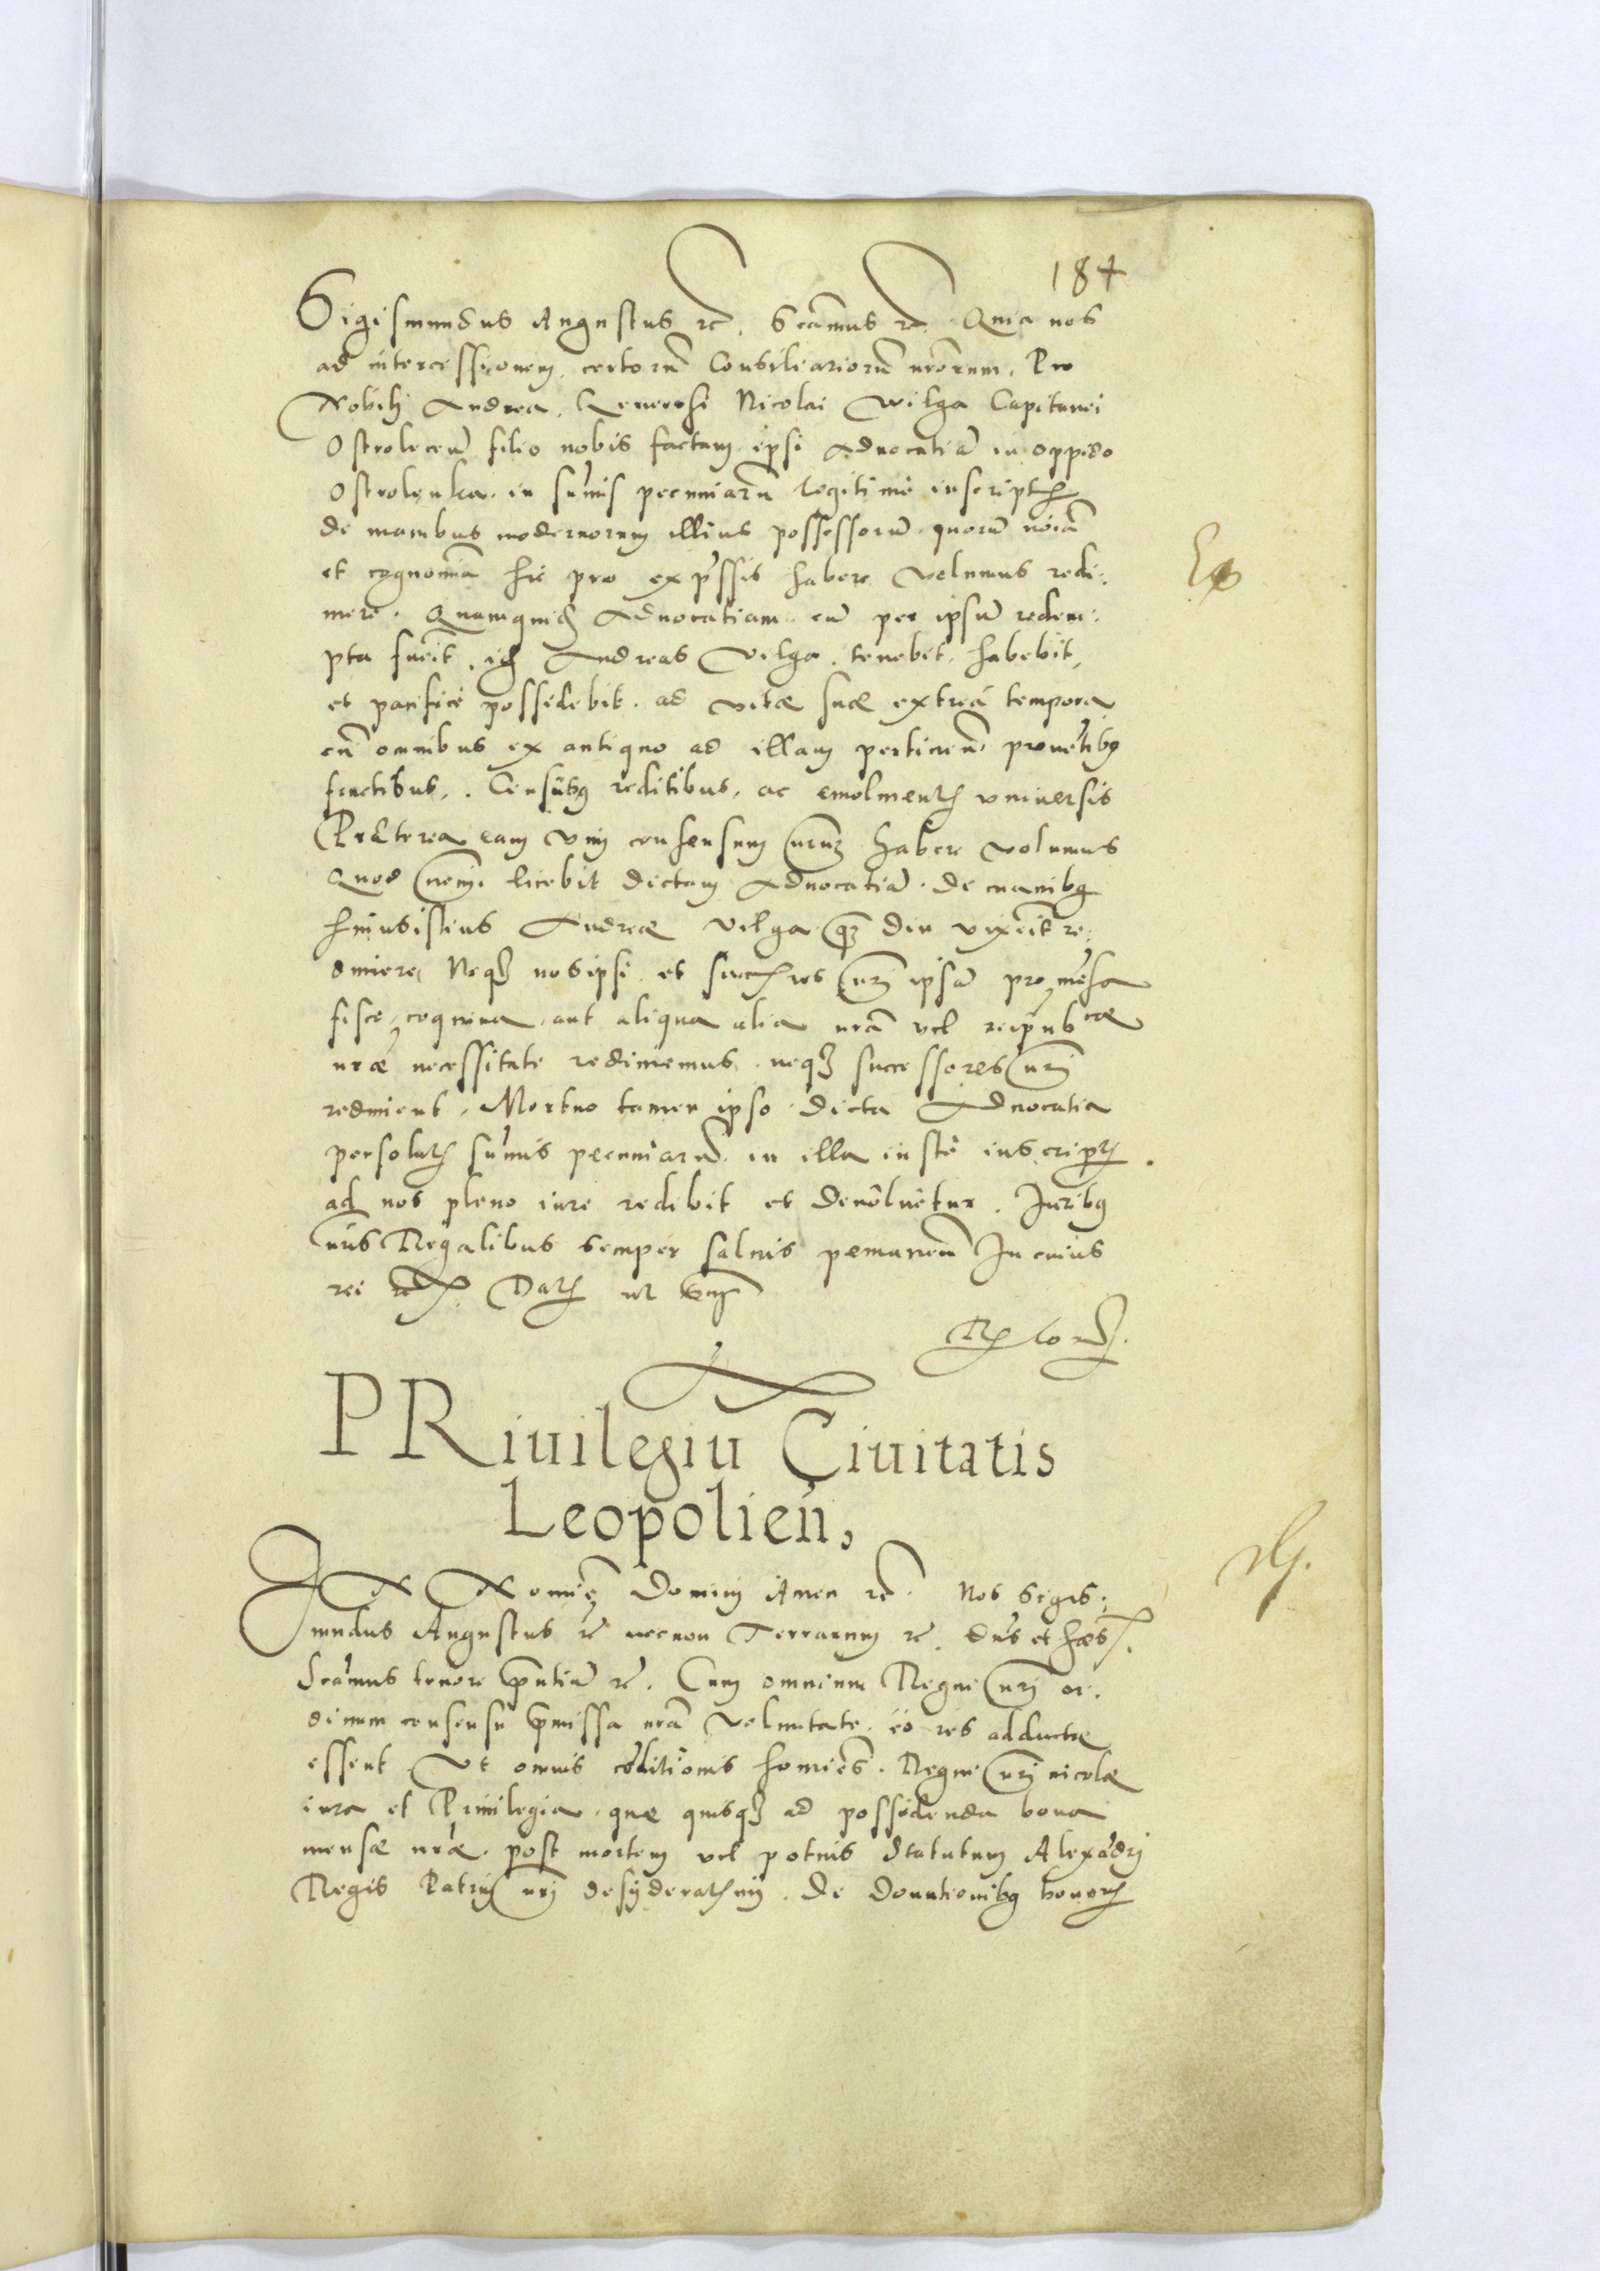 184
Sigismundus Augustus etc. Scãmus etc. Quia nos
ad intercessionem certorũ Consiliariorũ nrõrum, Pro
Nobili Andrea, Generosi Nicolai Wilga Capitanei
Ostrolecen̄ filio nobis factam ipsi Aduocatiã in oppido
Ostrolenka in sum̃is pecuniarũ legitime inscriptis
de manibus modernorum illius possessorũ quorũ noĩa
et cognoĩa hic pro exp̃ssis habere volumus redi:
mere. Quamquidẽ Aduocatiam cũ per ipsũ redem:
pta fuerit, idẽ Andreas Vilga tenebit, habebit,
et pacifice possidebit ad vitæ suæ extrẽa tempora
cũ omnibus ex antiquo ad illam pertinen̄ prouẽtibꝫ
fructibus, Censibꝫ reditibus, ac emolmentis vniuersis
Præterea eam vim consensum nrũm habere volumus
Quod nemini licebit dictam Aduocatiã de manibꝫ
huiusistius Andreæ Vilga ꝙ̃ diu vixerit re:
dimere, Neqꝫ nos ipsi et succ̃res nr̃i ipsã pro mẽsa
fisco, coquina, aut aliqua alia nrã vel reipubcæ
nræ necessitate redimemus neqꝫ successores nr̃i
redimient. Mortuo tamen ipso dicta Aduocatia
persolutis sum̃is pecuniarũ in illa iuste inscriptis
ad nos pleno iure redibit et deuoluetur. Juribꝫ
nr̃is Regalibus semper saluis pemanen̄ In cuius
rei etc. Datis ut supra
PRiuilegiu Ciuitatis
Leopolien̄,
IN Nomie Domini Amen etc. Nos Sigis:
mudus Augustus etc. necnon Terrarum etc. Dñs et hæs
Scãmus tenore p̃ntiũ etc. Cum omnium Regni nr̃i or:
dinum consensu p̃missa nrã voluntate eo res adductæ
essent Vt omnis cõditionis homiẽs Regni nr̃i incolæ
iura et Priuilegia quæ quisqꝫ ad possidenda bona
mensæ nræ post mortem vel potius Statutum Alexãdri
Regis Patrui nr̃i desyderatissimi De Donationibꝫ bonorũ